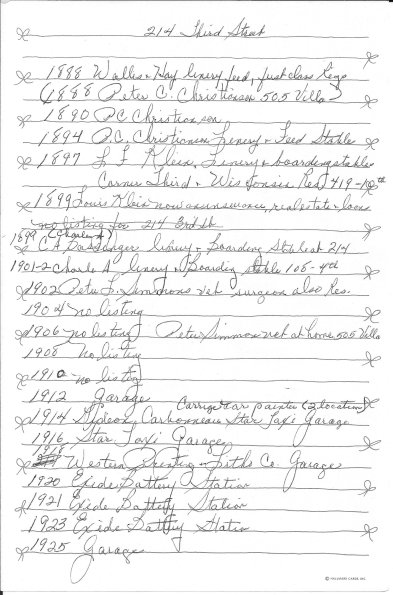 214 Third Street
1888 Walles & Hay livery feed, first class Rigs
(1888 Peter C. Christianson 505 Villa)
1890 P.C. Christianson
1894 P.C. Christianson Livery & Feed Stable
1897 L. F. Klein, Livery & boarding stable
Corner Third & Wisconsin Res. 419-10th
1899 Louis Klein now as insurance, real estate & loans
no listing for 214 3rd St
1899 (Charles A)
C A Bassenger livery & Boarding Stable at 214
1901-2 Charles A. livery & Boarding stable 108-4th
1902 Peter F. Simmons vet surgeon also Res.
1904 no listing
1906 no listing) Peter Simmon vet at home 505 Villa
1908 no listing
1910 no listing
1912 Garage
Carriage & car painter (2 locations)
1914 Gideon Carbonneau Star Taxi Garage
1916 Star Taxi Garage
1918
Western Printing & Litho Co. Garage
1920 Exide Battery Station
1921 Exide Battery Station
1923 Exide Battery Station
1925 Garage